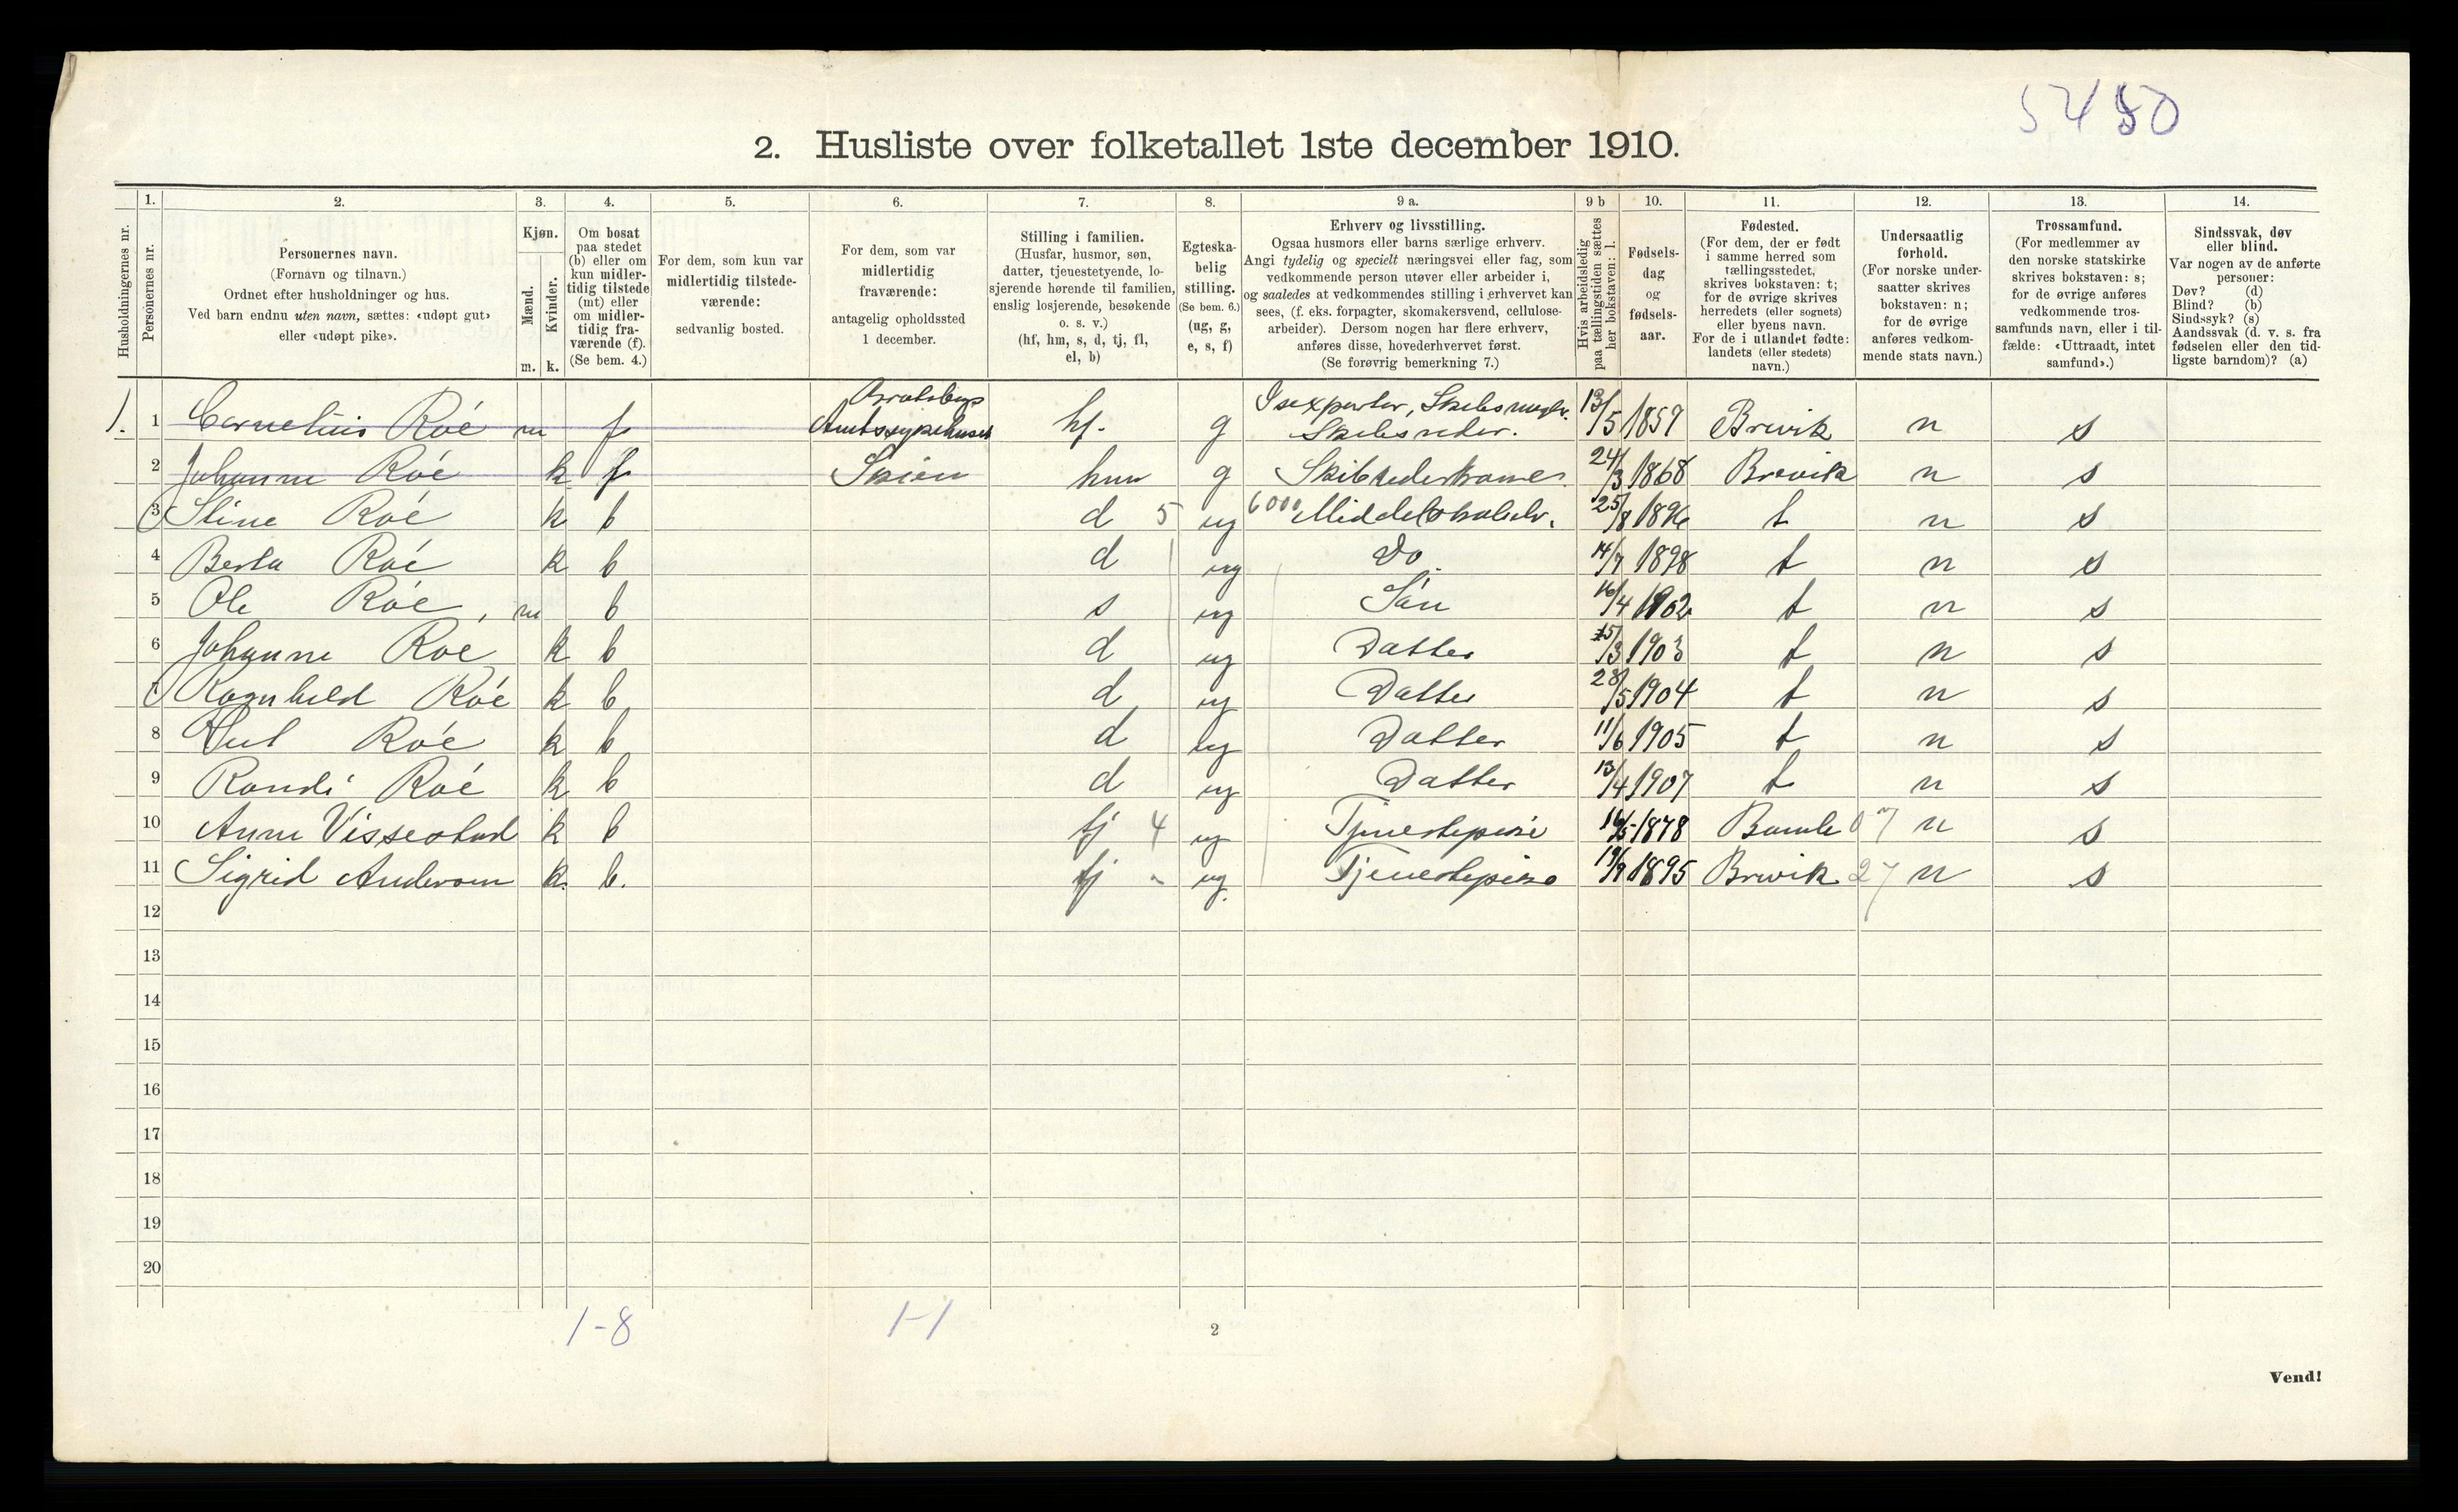 5480
2. Husliste over folketallet 1ste december 1910.
Husholdningernes nr.
1. Personernes nr.
2. Personernes navn.
(Fornavn og tilnavn.)
Ordnet efter husholdninger og hus.
Ved barn endnu uten navn, sættes: «udøpt gut»
eller «udøpt pike».
3. Kjøn.
Mænd. Kvinder.
m. k.
4. Om bosat
paa stedet
(b) eller om
kun midler-
tidig tilstede
(mt) eller
om midler-
tidig fra-
værende (f).
(Se bem. 4.)
5. For dem, som kun var
midlertidig tilstede-
værende:
sedvanlig bosted.
6. For dem, som var
midlertidig
fraværende:
antagelig opholdssted
1 december.
7. Stilling i familien.
(Husfar, husmor, søn,
datter, tjenestetyende, lo-
sjerende hørende til familien,
enslig losjerende, besøkende
o. s. v.)
(hf, hm, s, d, tj, fl,
el, b)
8. Egteska-
belig
stilling.
(Se bem. 6.)
(ug, g,
e, s, f)
9 a. Erhverv og livsstilling.
Ogsaa husmors eller barns særlige erhverv.
Angi tydelig og specielt næringsvei eller fag, som
vedkommende person utøver eller arbeider i,
og saaledes at vedkommendes stilling i erhvervet kan
sees, (f. eks. forpagter, skomakersvend, cellulose-
arbeider). Dersom nogen har flere erhverv,
anføres disse, hovederhvervet først.
(Se forøvrig bemerkning 7.)
9 b Hvis arbeidsledig
paa tællingstiden sættes
her bokstaven: l.
10. Fødsels-
dag
og
fødsels-
aar.
11. Fødested.
(For dem, der er født
i samme herred som
tællingsstedet,
skrives bokstaven: t;
for de øvrige skrives
herredets (eller sognets)
eller byens navn.
For de i utlandet fødte:
landets (eller stedets)
navn.)
12. Undersaatlig
forhold.
(For norske under-
saatter skrives
bokstaven: n;
for de øvrige
anføres vedkom-
mende stats navn.)
13. Trossamfund.
(For medlemmer av
den norske statskirke
skrives bokstaven: s;
for de øvrige anføres
vedkommende tros-
samfunds navn, eller i til-
fælde: «Uttraadt, intet
samfund».)
14. Sindssvak, døv
eller blind.
Var nogen av de anførte
personer:
Døv? (d)
Blind? (b)
Sindssyk? (s)
Aandssvak (d. v. s. fra
fødselen eller den tid-
ligste barndom)? (a)
1. 1 Cornelius Roé m f Amtssygehuset hf. g Isexportør, Skibsmegler. Skibsreder. 13/5 1859 Brevik n s
2 Johanne Roé k f Skien hm g Skibsrederkone 24/3 1868 Brevik n s
3 Stine Roé k b d 5 ug 6000 Middelskoleelv. 25/8 1896 t n s
4 Berta Roé k b d ug Do. 14/7 1898 t n s
5 Ole Roé, m b s ug Søn 16/4 1902 t n s
6 Johanne Roé k b d ug Datter 15/3 1903 t n s
7 Ragnhild Roé k b d ug Datter 28/5 1904 t n s
8 Roé k b d ug Datter 11/6 1905 t n s
9 Randi Roé k b d ug Datter 13/4 1907 t n s
10 Anne Visserstad k b tj 4 ug Tjenestepike 16/5 1878 Bamle 07 n s
11 Sigrid Andersen k. b. tj - ug. Tjenestepike 19/9 1895 Brevik 27 n s
12
13
14
15
16
17
18
19
20
1-8 1-1
2
Vend!